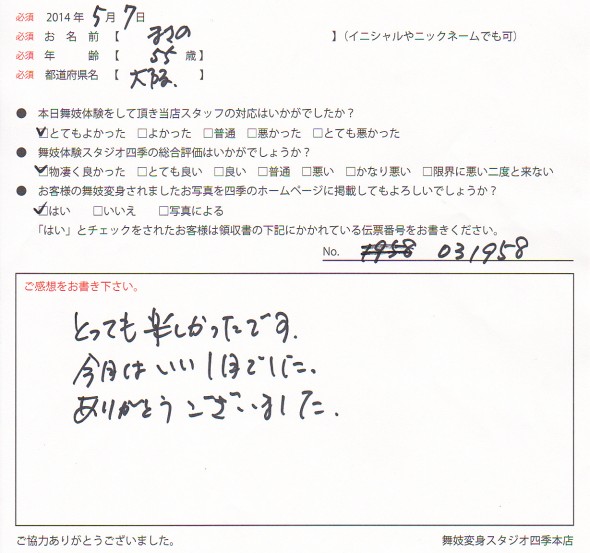 必須 2014年 5月 7日
必須 お名前【 】(イニシャルやニックネームでも可)
必須 年齢【 55 歳】
必須 都道府県名【 大阪. 】
● 本日舞妓体験をして頂き当店スタッフの対応はいかがでしたか?
☑とてもよかった □よかった □普通 □悪かった □とても悪かった
● 舞妓体験スタジオ四季の総合評価はいかがでしょうか?
☑物凄く良かった □とても良い □良い □普通 □悪い □かなり悪い □限界に悪い二度と来ない
● お客様の舞妓変身されましたお写真を四季のホームページに掲載してもよろしいでしょうか?
☑はい □いいえ □写真による
「はい」とチェックをされたお客様は領収書の下記にかかれている伝票番号をお書きください。
No. 1958 031958
ご感想をお書き下さい。
とっても楽しかったです.
今日はいい1日でした.
ありがとうございました.
ご協力ありがとうございました。
舞妓変身スタジオ四季本店